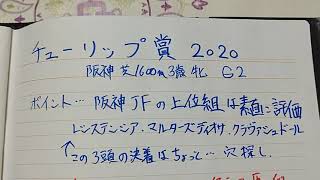 チューリップ賞 2020
阪神 芝1600m 3歳 牝 G2
ポイント… 阪神JFの上位組は素直に評価
レシステンシア・マルターズディオサ・クラヴァシュドール
この3頭の決着はちょっと… 穴探し。